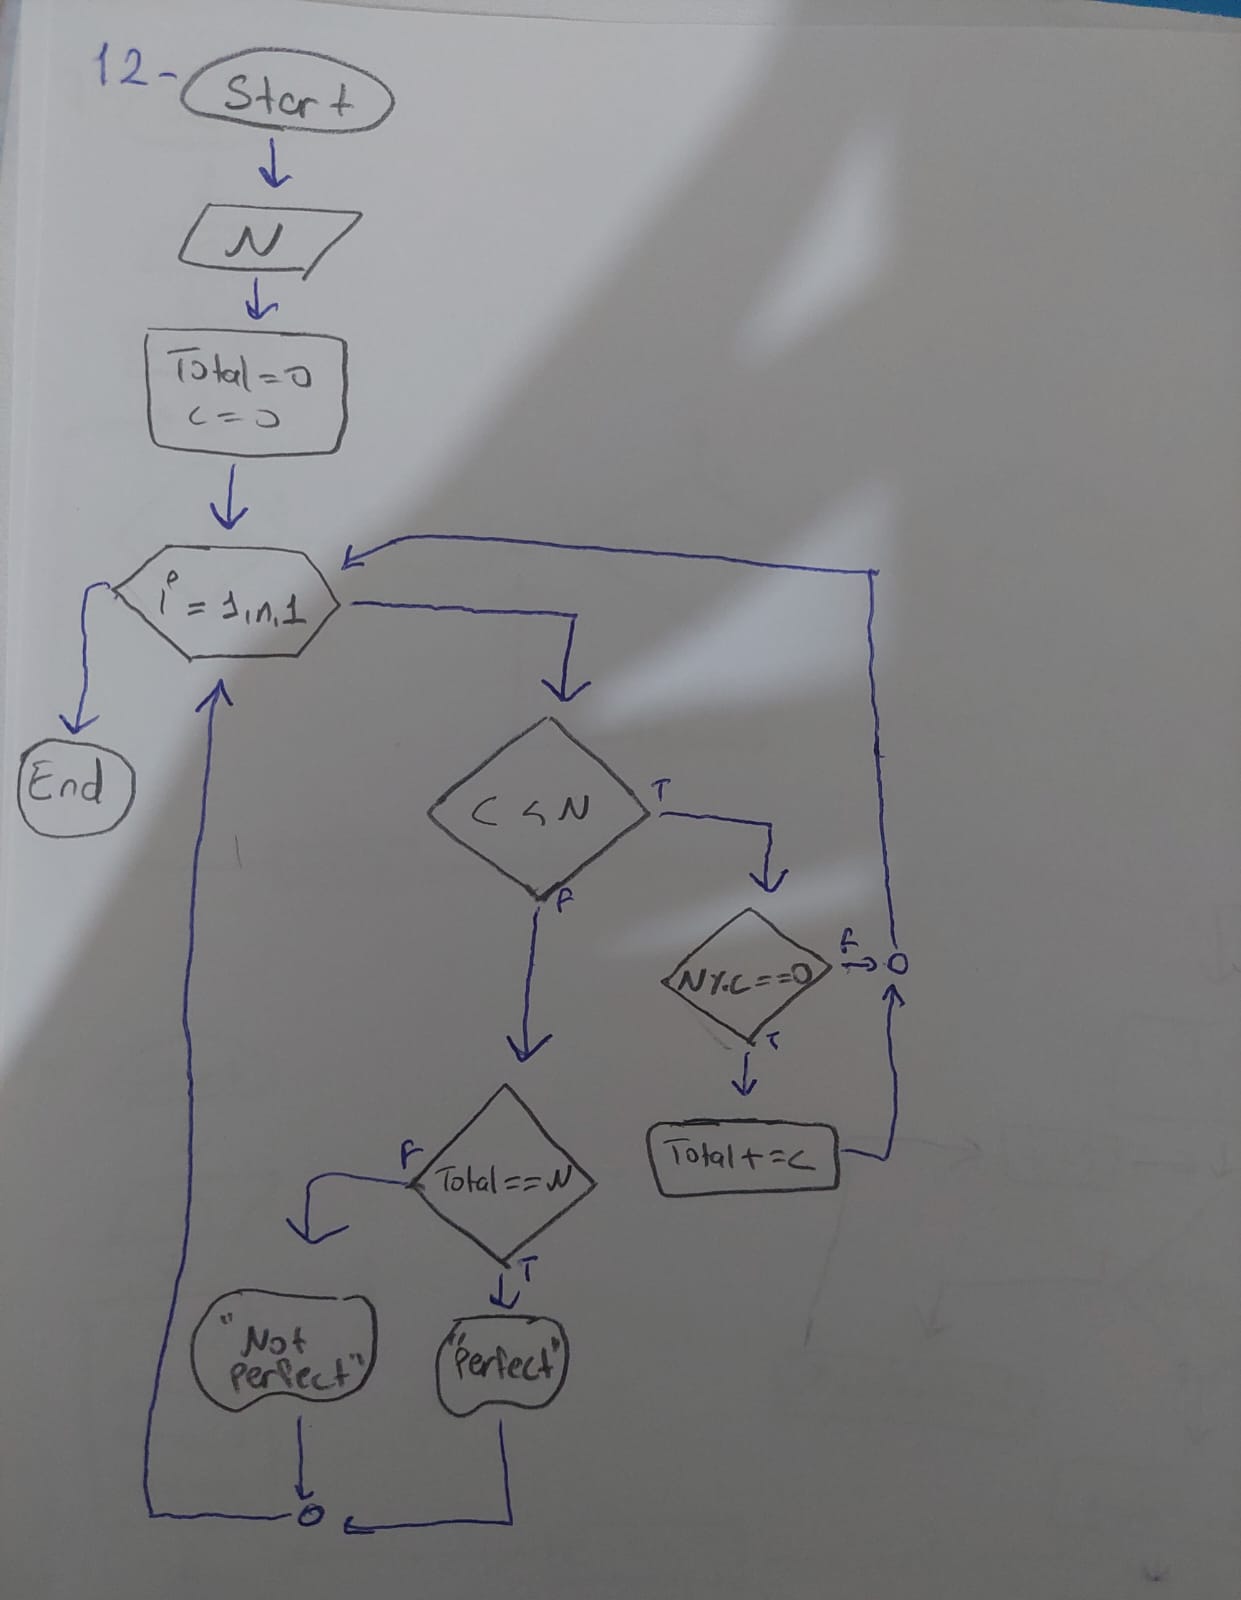 12-
Start
N
Total=0
c=0
i = 1,n,1
End
C < N
T
F
N%C==0
F
T
Total+=C
Total==N
F
T
"Not
perfect"
"Perfect"